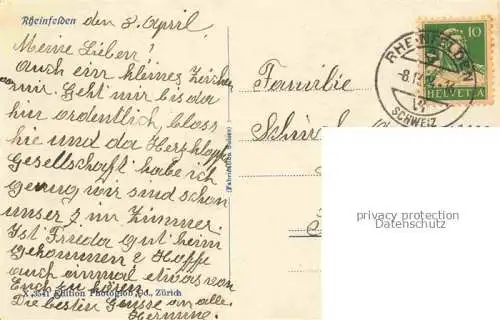 Rheinfelden den 8. April.
Meine Lieben!
auch ein kleines Zeichen
mir. Geht mir bis da
hier ordentlich, bloss
hie und da Herzklopf.
Gesellschaft habe ich
genug wir sind schon
unser 7 im Zimmer.
Ist Frieda gut heim
gekommen & Hoffe
auch einmal etwas von
Euch zu hören.
Die besten Grüsse an alle.
Hermine.
X. 3541 Edition Photoglob Co., Zürich
(Fabrication Suisse)
Familie
10
HELVETIA
RHEINFELDEN
SCHWEIZ
privacy protection
Datenschutz